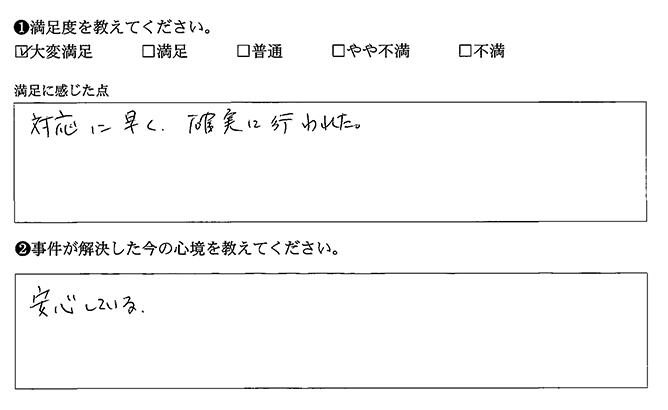 ❶満足度を教えてください。
☑大変満足 □満足 □普通 □やや不満 □不満
満足に感じた点
対応に早く、確実に行われた。
❷事件が解決した今の心境を教えてください。
安心している。